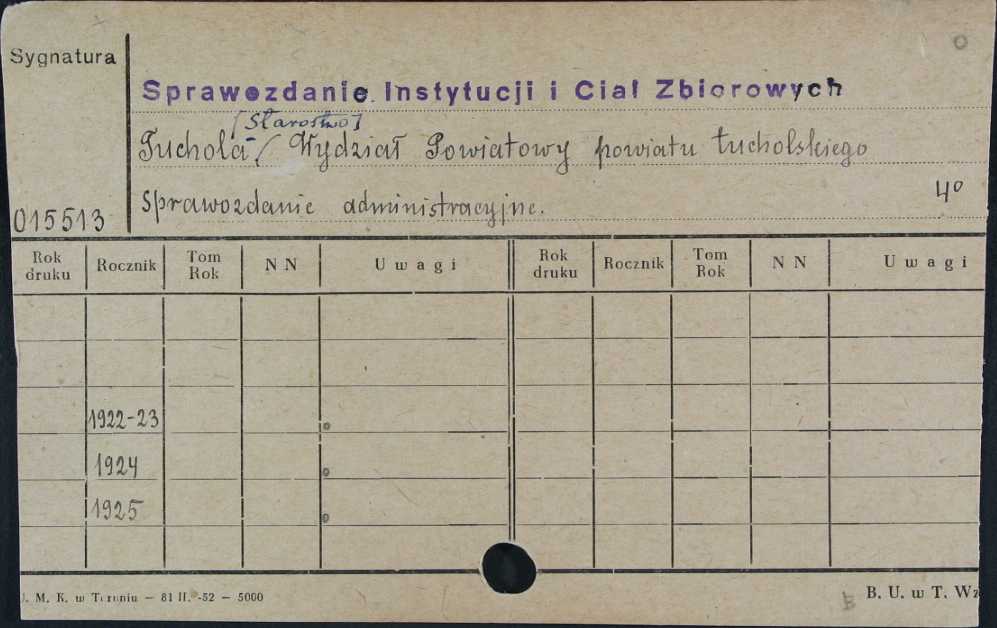 Sygnatura
Sprawozdanie Instytucji i Ciał Zbiorowych
[Starostwo]
Tuchola / Wydział Powiatowy powiatu tucholskiego
Sprawozdanie administracyjne.
4º
015513
Rok druku Rocznik Tom Rok N N Uwagi Rok druku Rocznik Tom Rok N N Uwagi
1922-23
1924
1925
U. M. K. w Toruniu — 81 II. -52 — 5000
B. U. w T. Wz